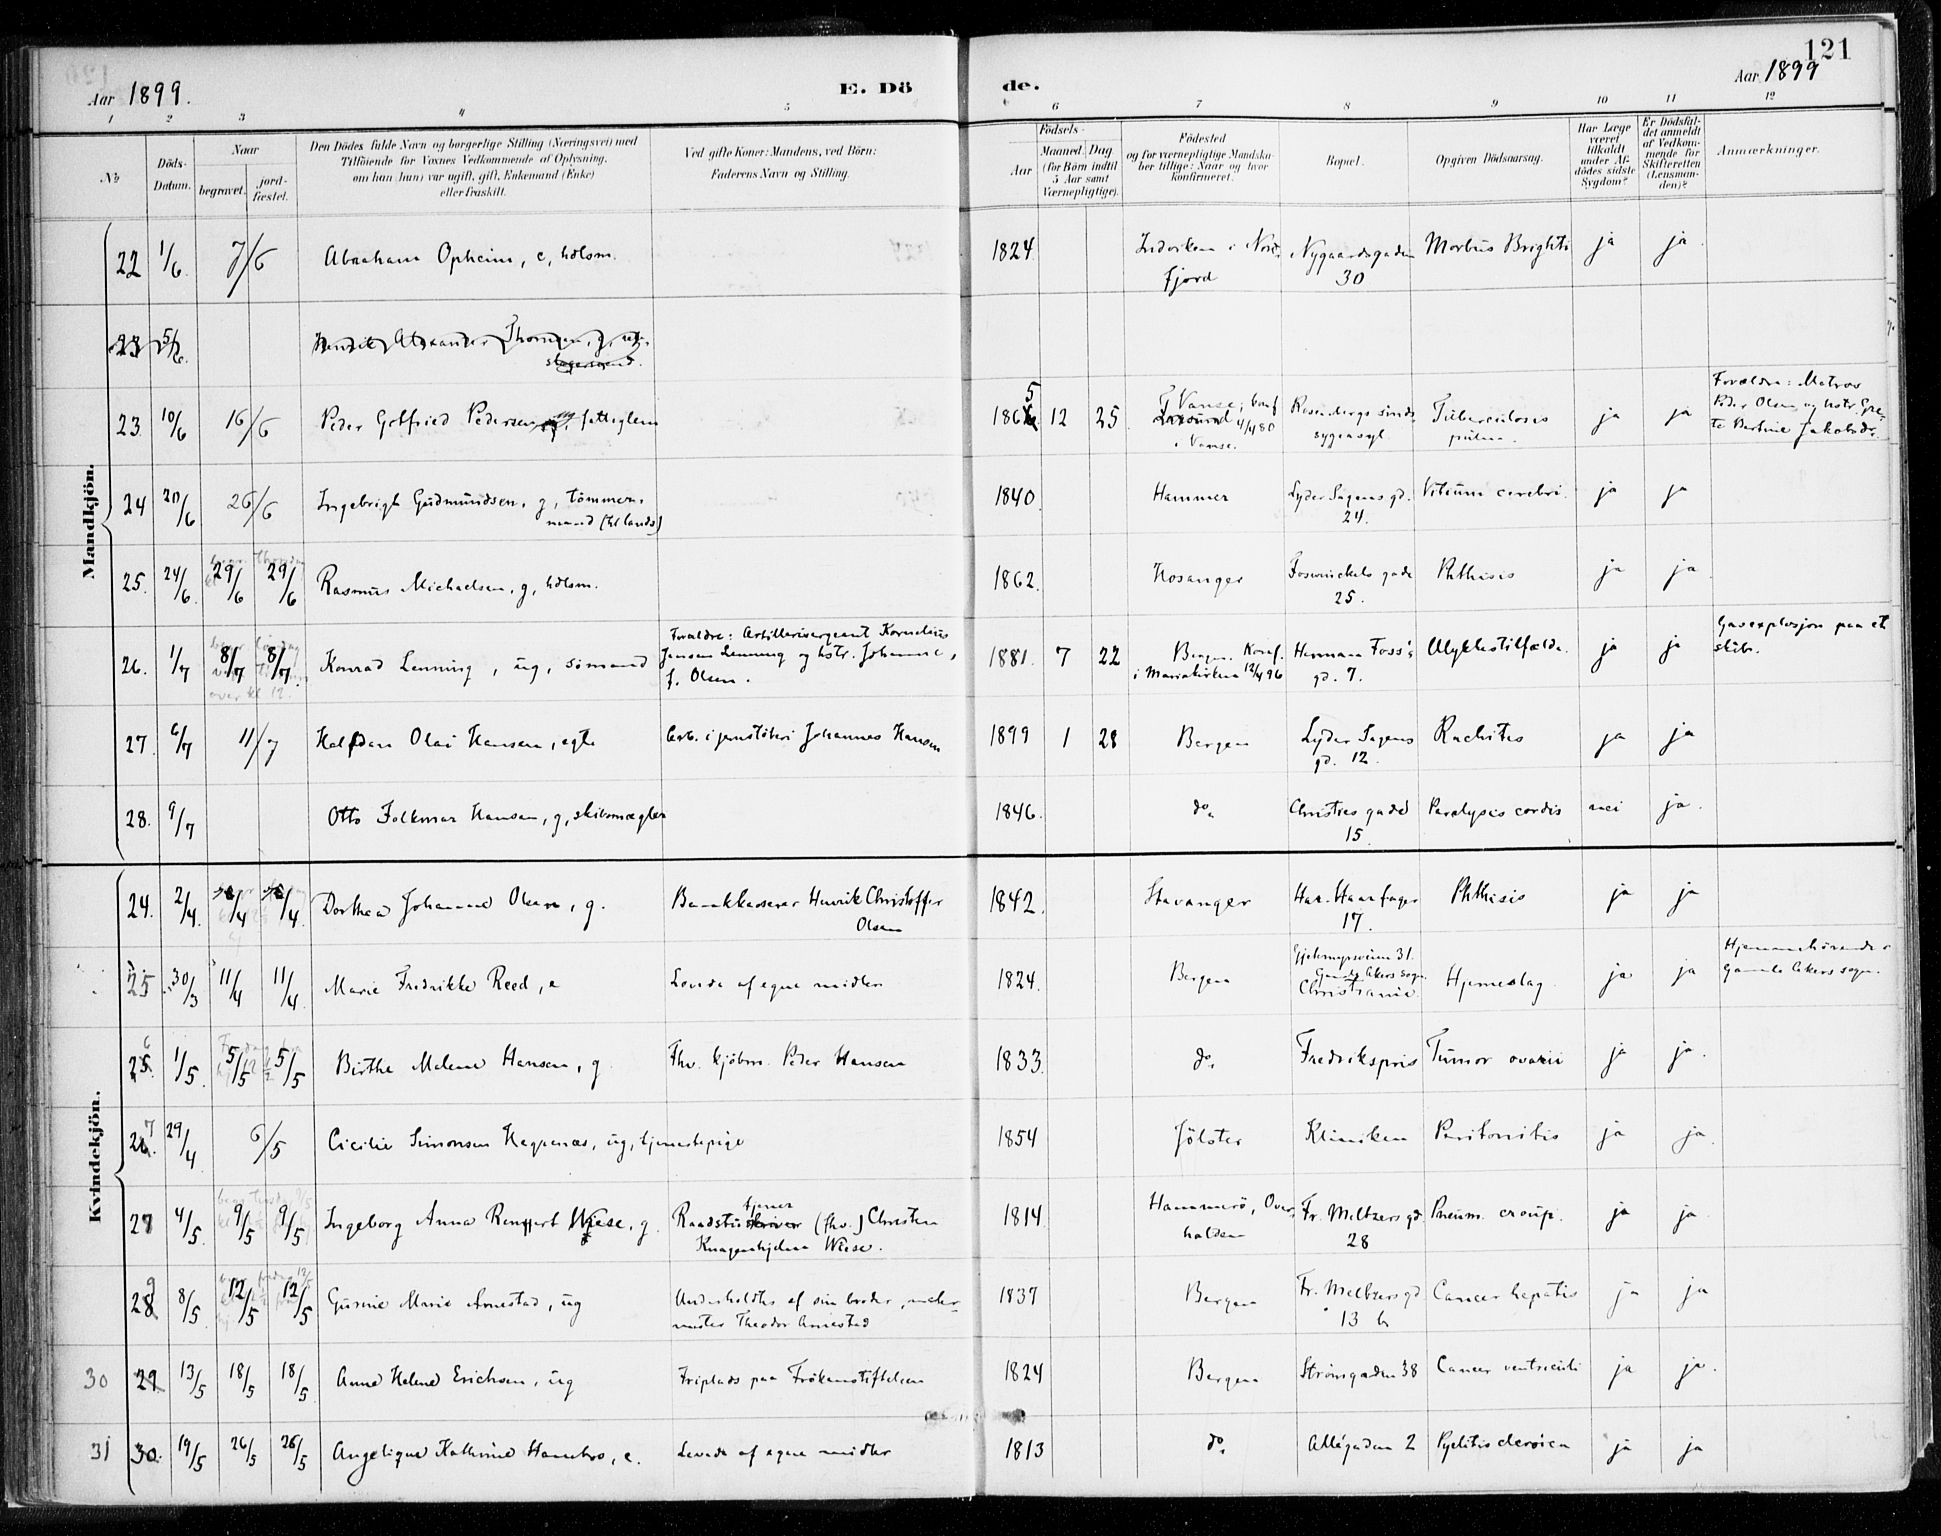 121
Aar 1899. E. Dö
de. Aar 1899
1 2 3 4 5 6 7 8 9 10 11 12
No
Döds-
Datum.
Naar
begravet.
jord-
fæstet.
Den Dödes fulde Navn og borgerlige Stilling (Næringsvei) med
Tilföiende for Voxnes Vedkommende af Oplysning,
om han (hun) var ugift, gift, Enkemand (Enke)
eller fraskilt.
Ved gifte Koner: Mandens, ved Börn:
Faderens Navn og Stilling.
Födsels-
Aar
Maaned. Dag
(for Börn indtil
5 Aar samt
Værnepligtige).
Födested
og for værnepligtige Mandska-
ber tillige: Naar og hvor
konfirmeret.
Bopæl.
Opgiven Dödsaarsag.
Har Læge
været
tilkaldt
under Af-
dödes sidste
Sygdom?
Er Dödsfal-
det anmeldt
af Vedkom-
mende for
Skifteretten
(Lensman-
den)?
Anmærkninger.
Mandkjön.
22 1/6. 7/6 Abraham Opheim, e, hdlsm. 1824 Indviken i Nord- Nygaardsgaden Morbus Brighti ja ja.
fjord 30
23 5/6. Alexander Thomsen, g,
23. 10/6 16/6 Peder Gotfried Pedersen, ug, fattiglem 1865 12 25 Vanse, konf. Rosenbergs sinds- Tuberculosis ja ja Forældre: Matros
4/4 80 sygeasyl pulm. Peder Olsen og hstr. Gre-
i Vanse. te Bertine Jakobsdr.
24 20/6 26/6 Ingebrigt Gudmundsen, g, tömmer- 1840 Hammer Lyder Sagens gd. Vitium cerebri. ja ja
mand (tillands) 24.
25. 24/6. 29/6 29/6 Rasmus Michaelsen, g, hdlsm. 1862. Hosanger Foswinckels gade Phthisis ja ja
25.
26. 1/7 8/7 8/7. Konrad Lenning, ug, sömand Forældre: Artillerisergeant Kornelius
Jensen Lenning og hstr. Johanne, 1881. 7 22 Bergen. Konf. Herman Foss's Ulykkestilfælde. ja ja Gasexplosjon paa et
f. Olsen. i Mariakirken 12/4 96 gd. 7. skib.
27. 6/7 11/7 Halfdan Olai Hansen, egte Arb. i jernstöberi Johannes Hansen 1899 1 28 Bergen Lyder Sagens Rachitis ja ja
gd. 12.
28. 9/7 Otto Folkmar Hansen, g, skibsmægler 1846. do. Christies gade Paralysis cordis nei ja.
15.
Kvindekjön.
24. 2/4. 8/4 8/4. Dorthea Johanne Olsen, g. Bankkasserer Henrik Christoffer 1842. Stavanger Har. Haarfagers Phthisis ja ja
Olsen 17.
25 30/3 11/4 11/4. Marie Fredrikke Reed, e Levede af egne midler 1824. Bergen Gjetemyrsveien 31. Hjerneslag ja ja Hjemmehörende i
Gamle Akers sogn. Gamle Akers sogn.
Christiania
26 1/5. 5/5 5/5 Birthe Malene Hansen, g. Fhv. kjöbm. Peder Hansen 1833. do. Fredrikspris Tumor ovarii ja ja.
27 29/4 6/5 Cicilie Simonsen Heggenæs, ug, tjenestepige 1854 Jölster Kliniken Peritonitis ja ja.
27 4/5. 9/5 9/5 Ingeborg Anna Wiese, g. Raadstutjener (fhv.) Christen 1814 Hammerö, Over- Fr. Meltzers gd. Pneum. croup. ja ja.
Knagenhjelm Wiese. halden 28
29 8/5 12/5 12/5 Gurine Marie Arnestad, ug Underholdtes af sin broder, maler- 1837 Bergen Fr. Meltzers gd. Cancer hepatis ja ja
mester Theodor Arnestad 13 b
30 29 13/5 18/5 18/5 Anne Helene Erichsen, ug Friplads paa Frökenstiftelsen 1824 Bergen Strömgaden 38 Cancer ventriculi ja ja.
31 30. 19/5 26/5 26/5 Angelique Kathrine Hambro, e. Levede af egne midler 1813 do. Allégaden 2 Pyelitis ja ja